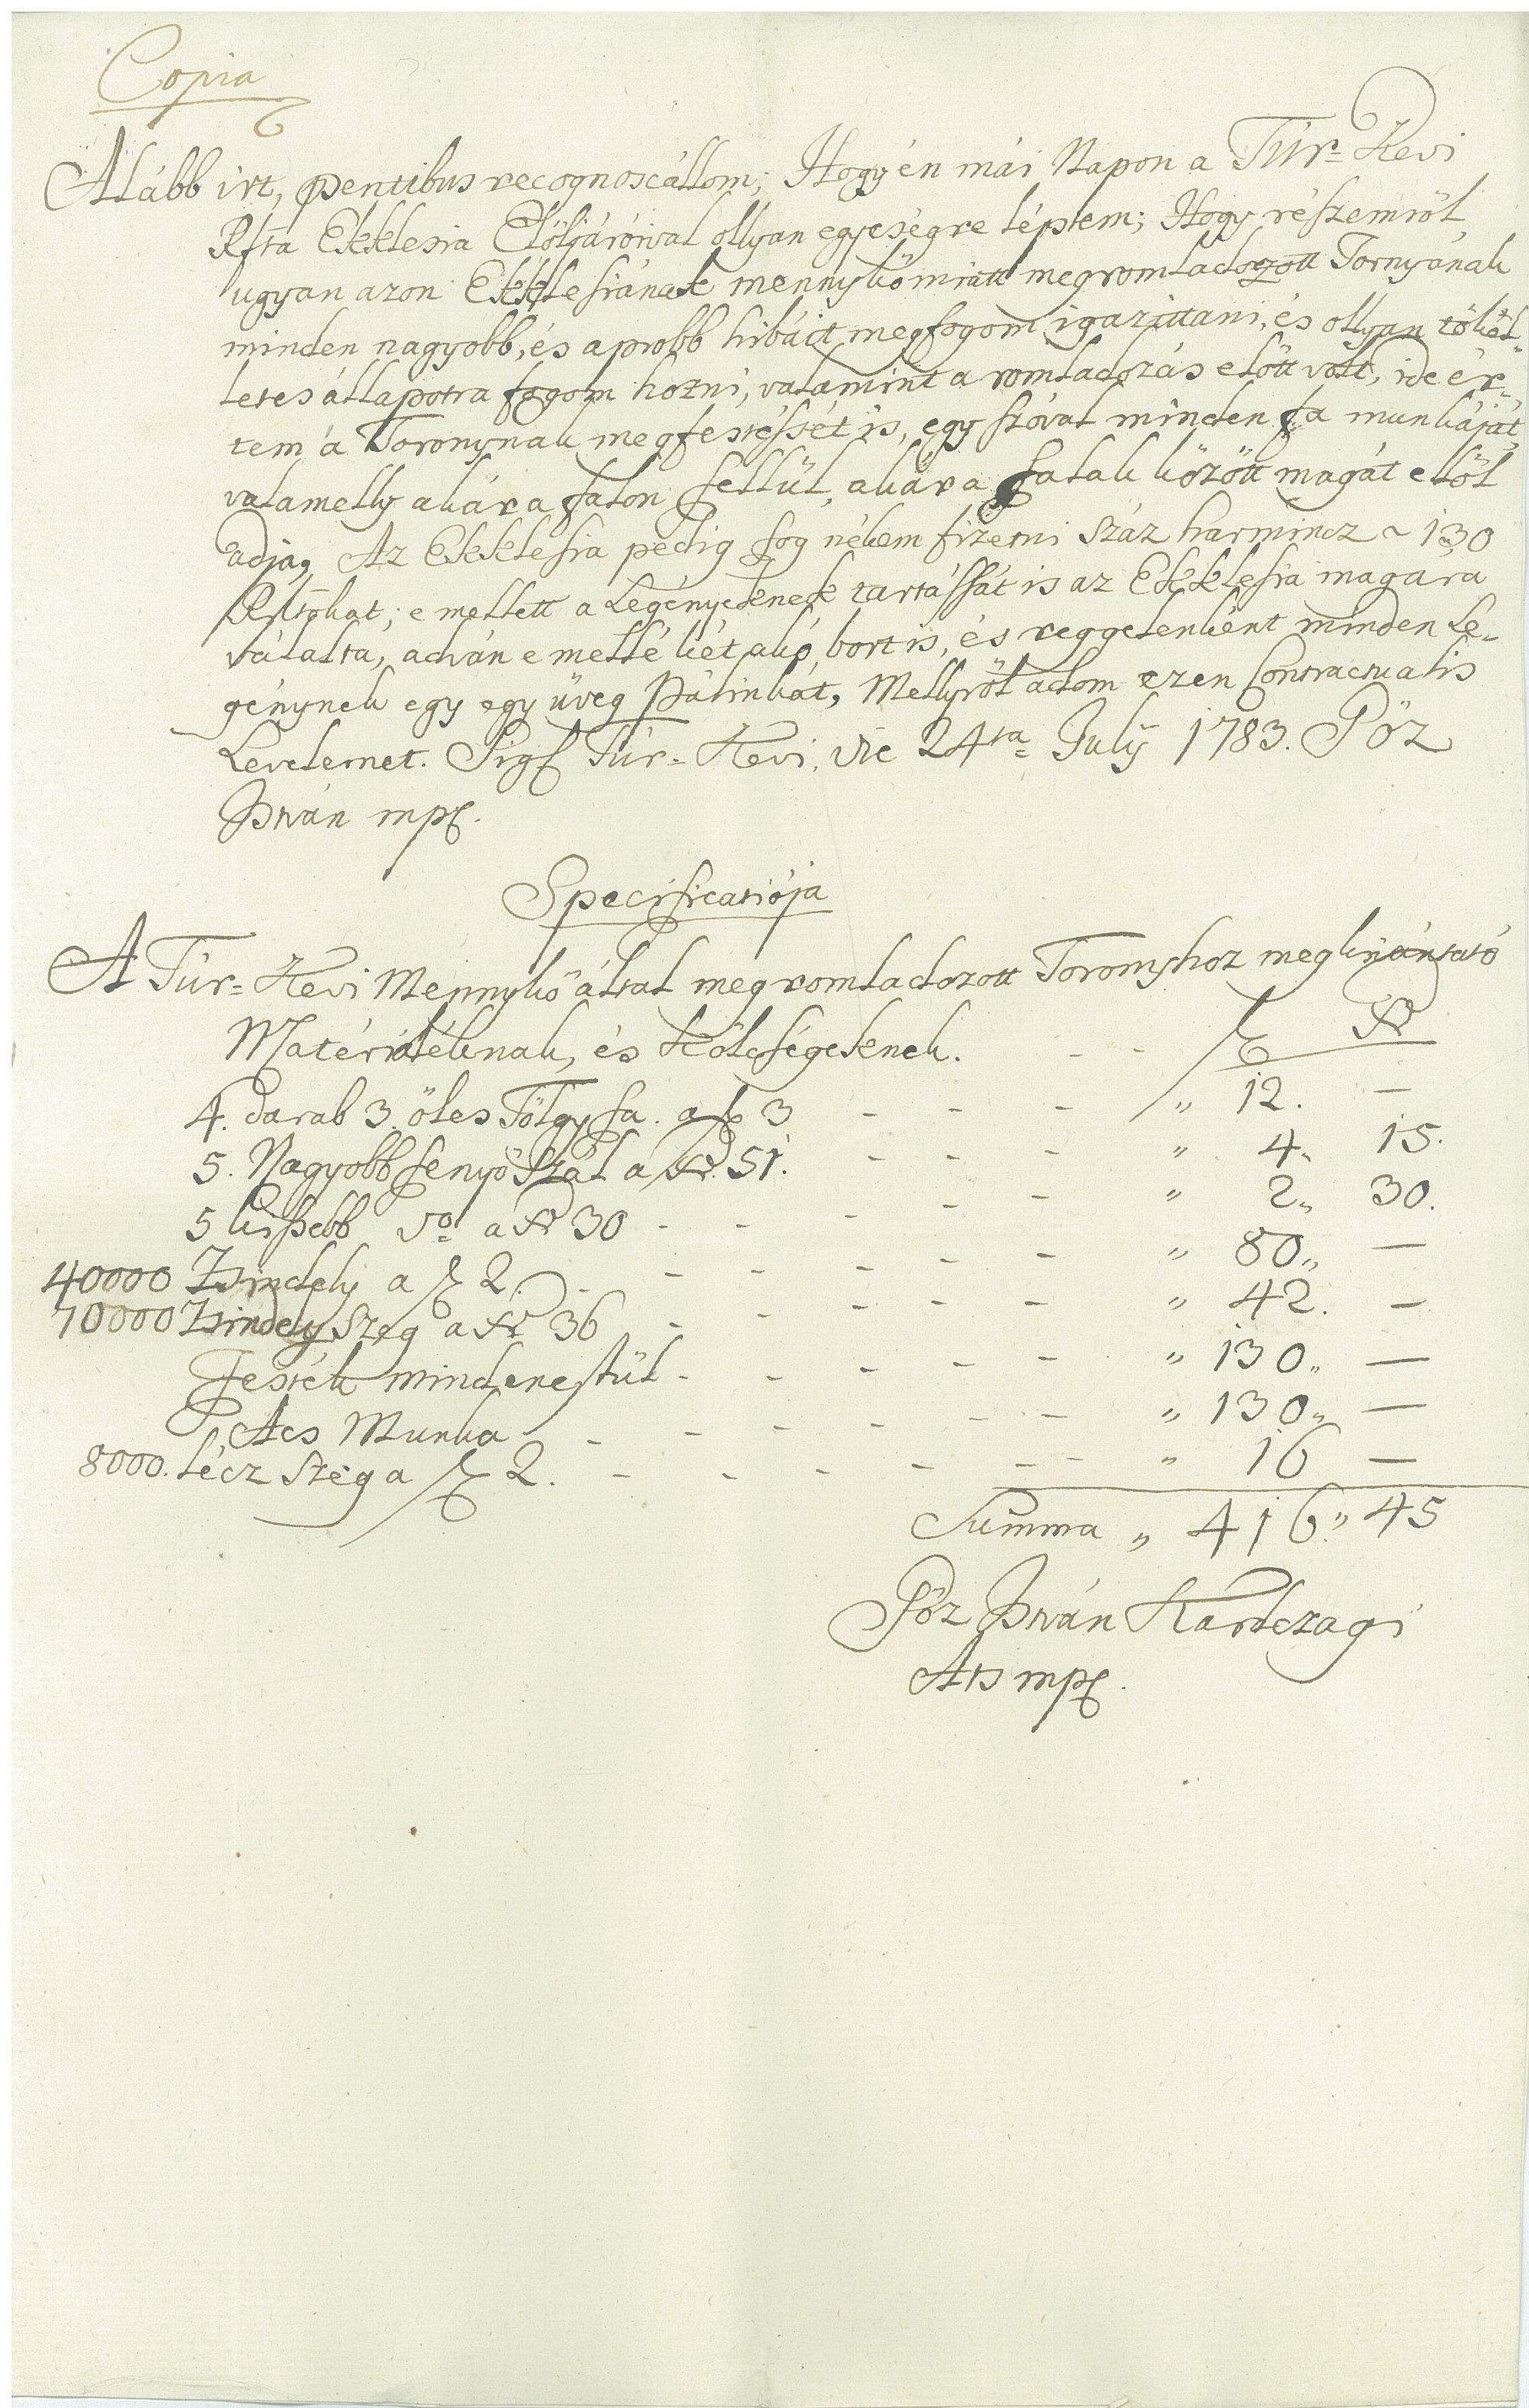 Copia
Alább irt, pentibus recognoscállom; Hogy én mái Napon a Túr=Kevi
Rfta Ekklesia Elöljáróival ollyan egyeségre léptem; Hogy részemröl
ugyan azon Ekklesiának mennykö miatt megromladozott Tornyának
minden nagyobb, és aprobb hibáit megfogom igazittani, és ollyan tökél-
letes állapotra fogom hozni, valamint a romladozás elött vólt, ide ér-
tem a Toronynak megfestéssét is, egy szóval minden fa munkáját,
valamelly akár a falon fellül, akár a falak között magát elöl
adja, Az Ekklesia pedig fog nékem fizetni száz harmincz ~ 130
Rftokat; e mellett a Legényeknek tartássát is az Ekklesia magára
válalta, adván e mellé két akó bort is, és reggelenként minden Le-
génynek egy egy üveg Pálinkát, Mellyröl adom ezen Contractualis
Levelemet. Sigl Túr=Kevi, die 24ta July 1783. Póz
István mpr.
Specificatiója
A Túr=Kevi Mennykö által megromladozott Toronyhoz megkivántató
Matériáléknak, és költségeknek. - - Rf Xr
4. darab 3. öles Tölgy fa. a Rf 3 - - - " 12. —
5. Nagyobb fenyö Szál a Xr. 51. - - - " 4. 15.
5 kissebb do a Xr 30 - - - - - " 2" 30.
40000 Zsindely a Rf 2. - - - - - - " 80" —
70000 Zsindely Szeg a Xr 36 - - - - - " 42. —
Festék mindenestül - - - - - " 130" —
Ács Munka - - - - - - " 130" —
8000. Lécz Szég a Rf 2. - - - - - - " 16 —
Summa " 416" 45
Póz István Kardszagi
Áts mpr.